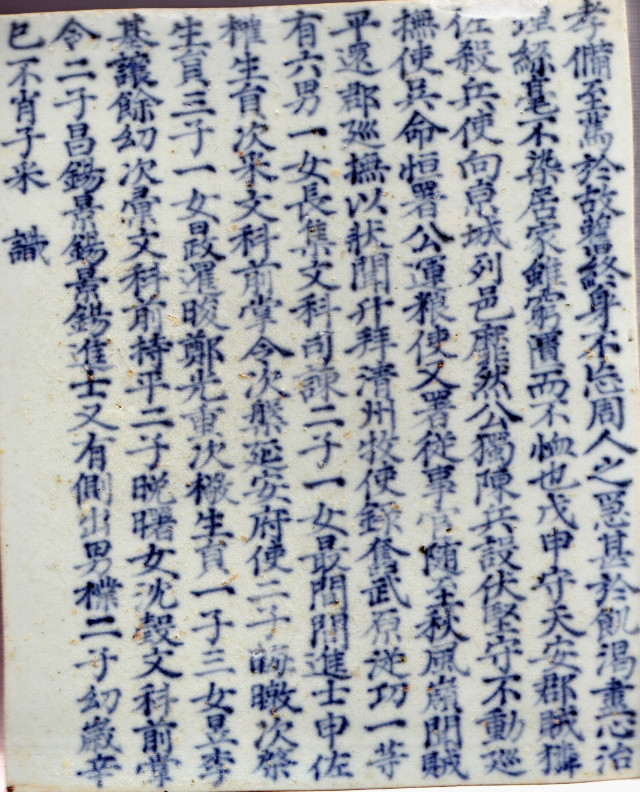 孝備至篤於故舊終身不忘周人之急甚於飢渴晝心治
理絲毫不染居家雖窮匱而不恤也戊申守天安郡賊獜
佐殺兵使向京城列邑靡然公獨陳兵設伏堅守不動巡
撫使吳命恒署公運粮使又署從事官随至秋風嶺聞賊
平還郡巡撫以狀聞升拜清州牧使錄奮武原從功一等
有六男一女長集文科司諫二子一女最間間進士申佐
權生員次宋文科前掌令次槃延安府使二子晦暾次榮
生員三子一女晸暹晙鄭光重次檄生員一子三女昱李
基讓餘幼次彙文科前持平二子晩曙女沈瑴文科前掌
令二子昌錫景錫景錫進士又有側出男檏二子幼歲辛
巳不肖子宋 識